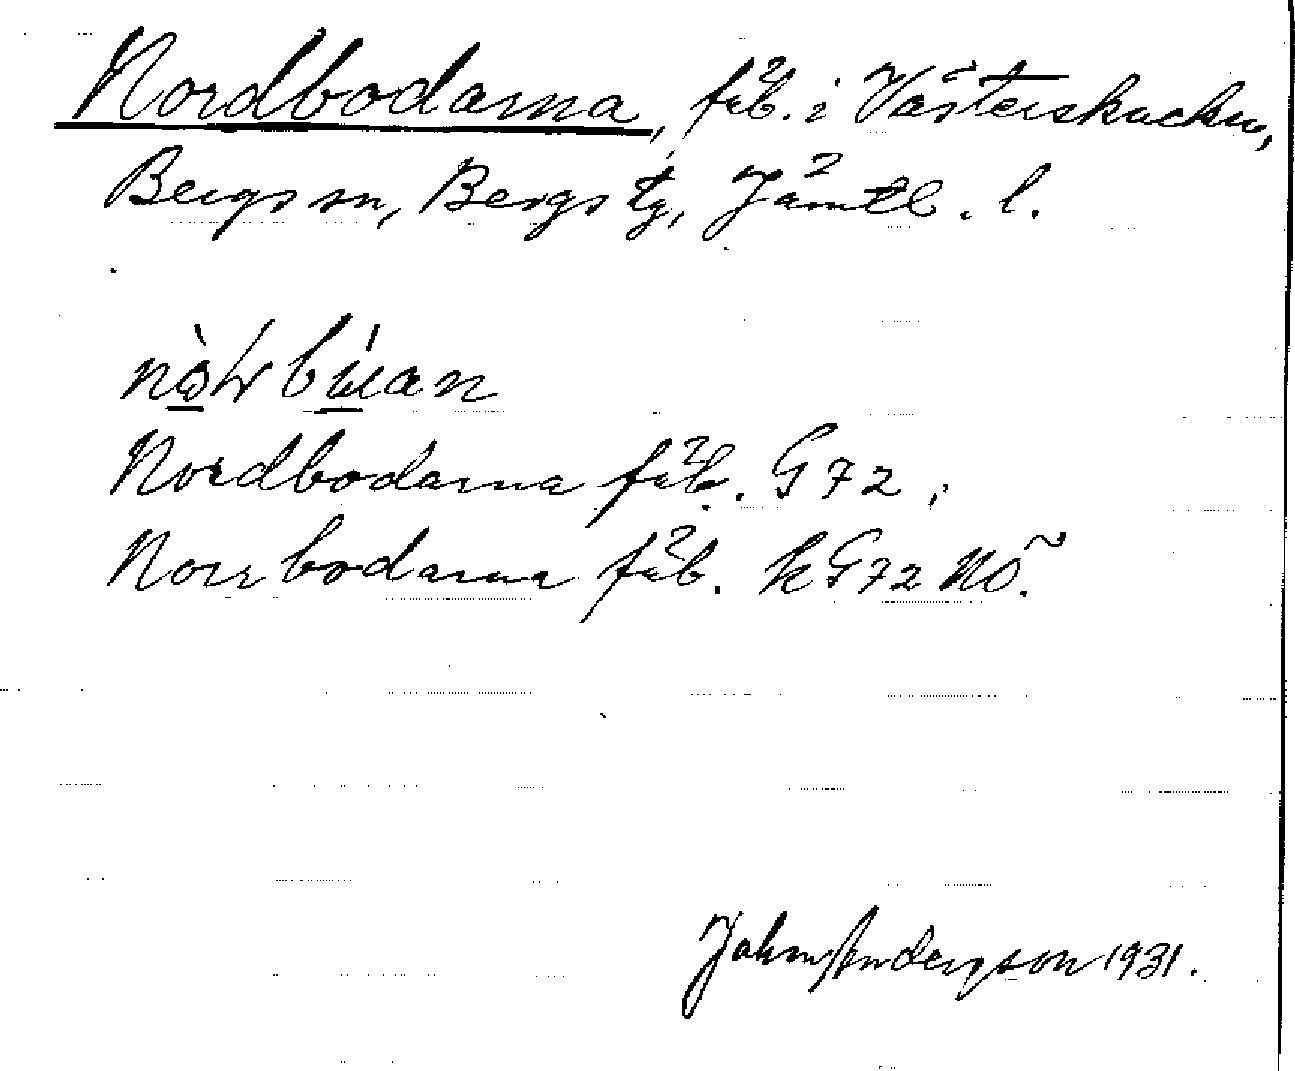 Nordbodarna, fäb. i Västerskucku,
Bergs sn, Bergs tg, Jämtl. l.
Nordbodarna fäb. G 72,
Norrbodarna fäb. k G 72 NÖ.
John Anderson 1931.